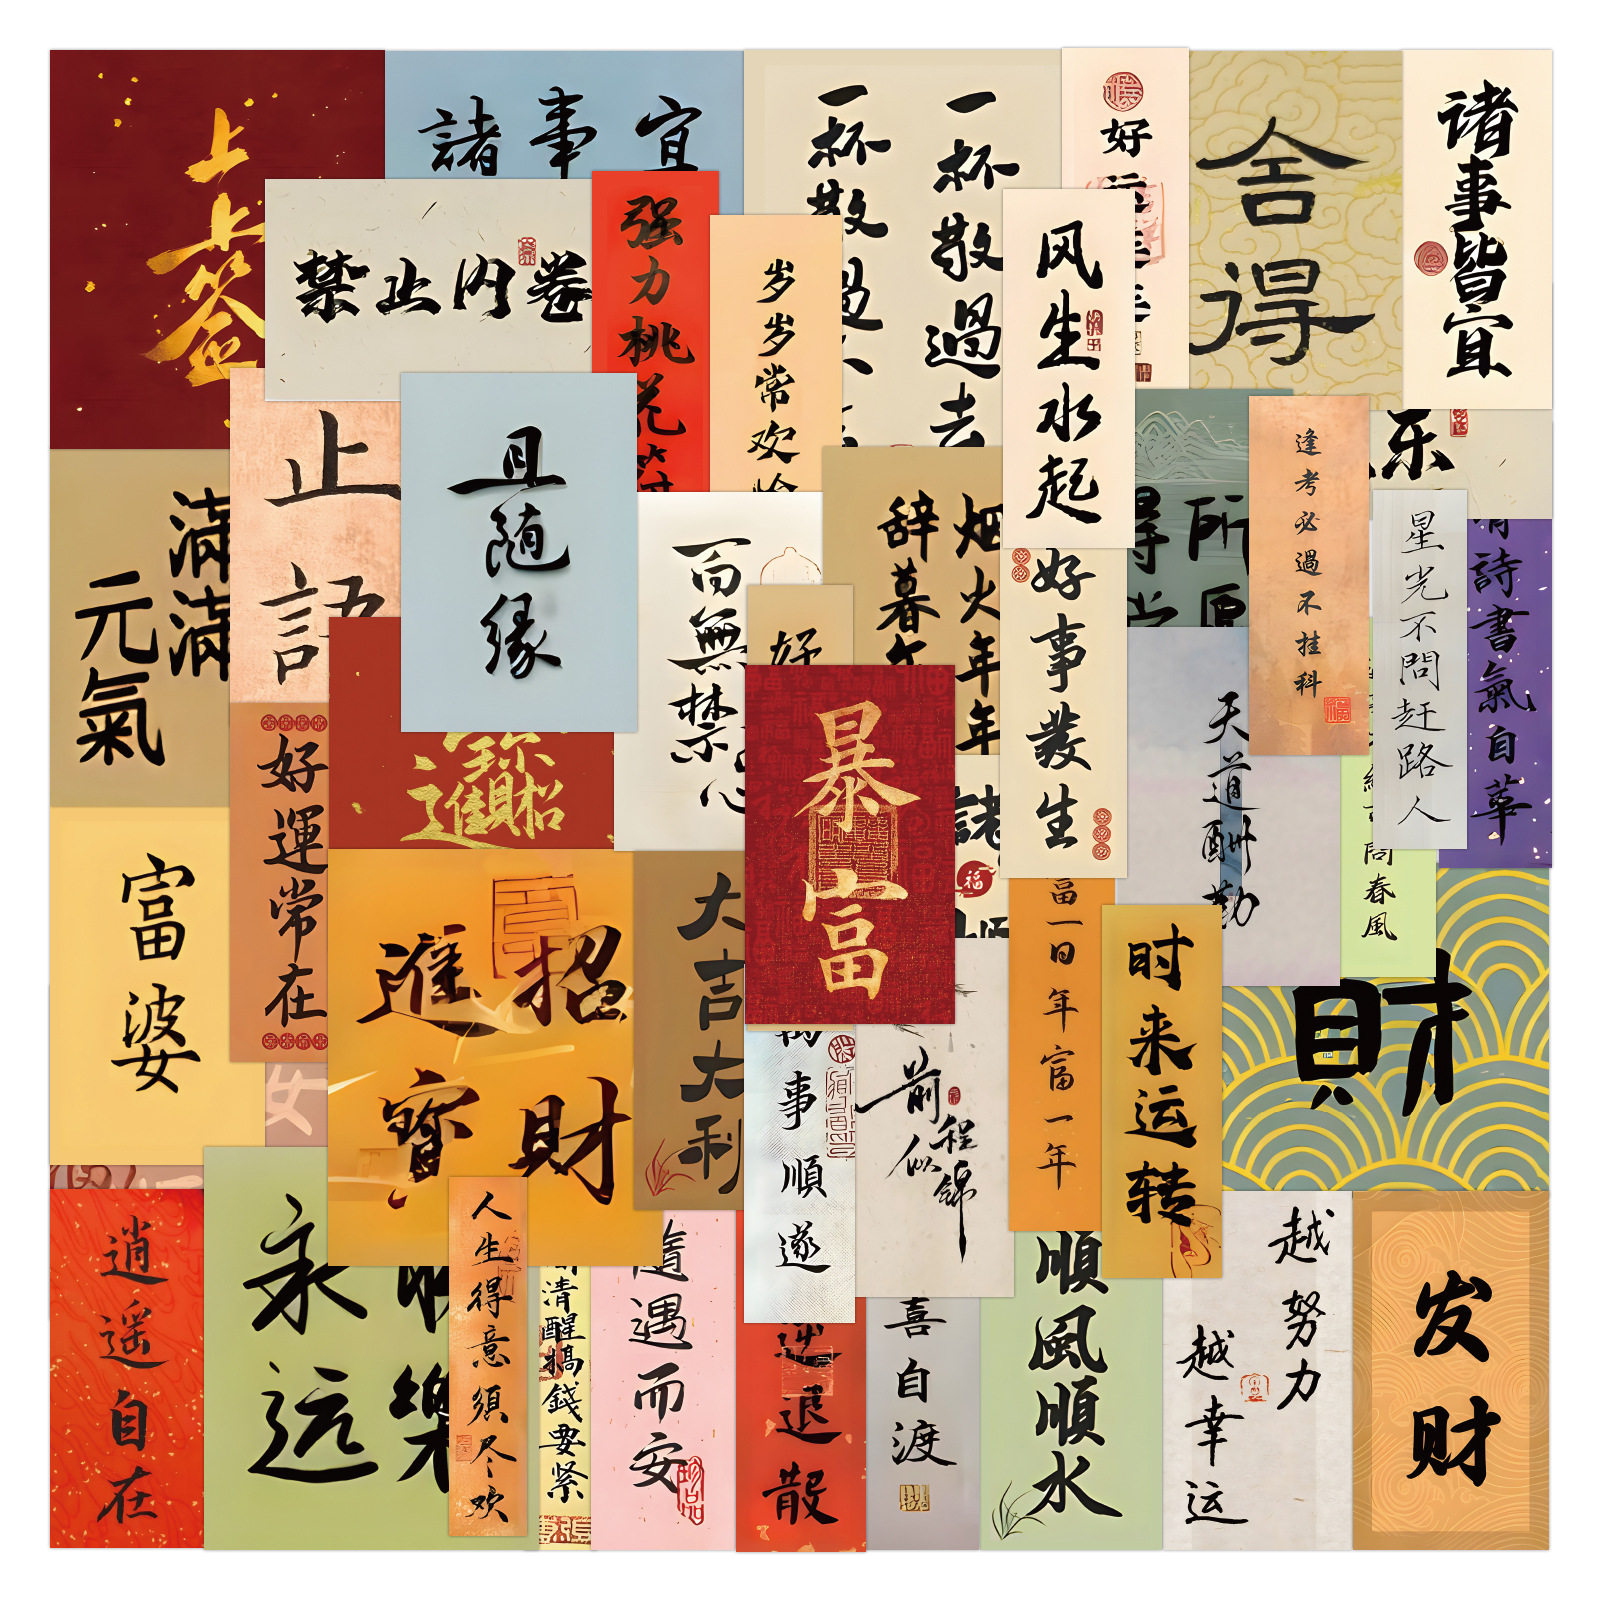 上上签
諸事宜
一杯敬過去
一杯敬過
好运
舍得
诸事皆宜
禁止内卷
强力桃花符
岁岁常欢愉
风生水起
止語
且随缘
元氣滿滿
百無禁忌
辞暮
烟火年年
得所
逢考必過不挂科
乐
星光不問赶路人
詩書氣自華
好運常在
招財進寶
好
暴富
好事發生
天道酬勤
問春風
富婆
招財進寶
大吉大利
諸
福
順
富一日年富一年
时来运转
財
女
萬事順遂
前程似錦
逍遥自在
永遠
樂
人生得意須尽欢
清醒搞錢要紧
隨遇而安
逆退散
喜自渡
順風順水
越努力
越幸运
发财